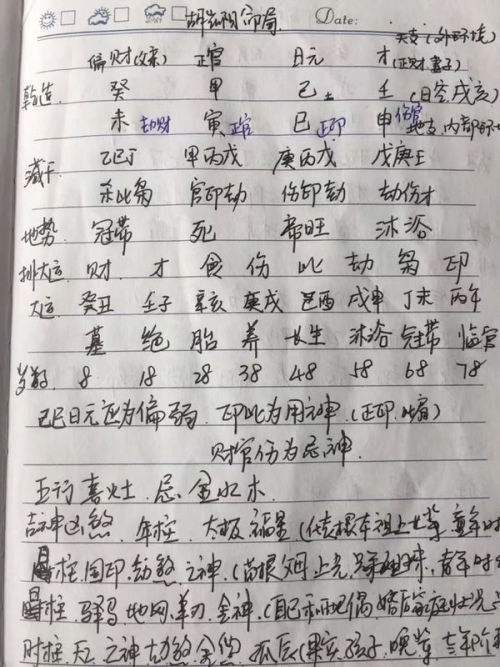 Date:
胡 命局
天支(外环境)
偏财 正官 日元 才(正财妻子)
乾造 癸 甲 己土 壬(日空戌亥)
未劫财 寅正官 巳正印 申伤官 地支内部
藏干 乙己丁 甲丙戊 庚丙戊 戊庚壬
杀比枭 官印劫 伤印劫 劫伤才
地势 冠带 死 帝旺 沐浴
排大运 财 才 食 伤 比 劫 枭 印
大运 癸丑 壬子 辛亥 庚戌 己酉 戊申 丁未 丙午
墓 绝 胎 养 长生 沐浴 冠带 临官
岁数 8 18 28 38 48 58 68 78
己巳日元应为偏弱.印比为用神.(正印.枭)
财官伤为忌神.
五行喜火土.忌金水木
吉神凶煞.年柱.大败 福星(代表根本祖上长辈 童年时
月柱.国印.劫煞 之神.(苗根 父母 上克.兄弟姐妹.青年时
日柱 驿马 地网.羊刃.金神.(自己和配偶 婚后家庭状况
时柱 天乙 之神 劫煞 金 孤辰(果实 孩子.晚辈